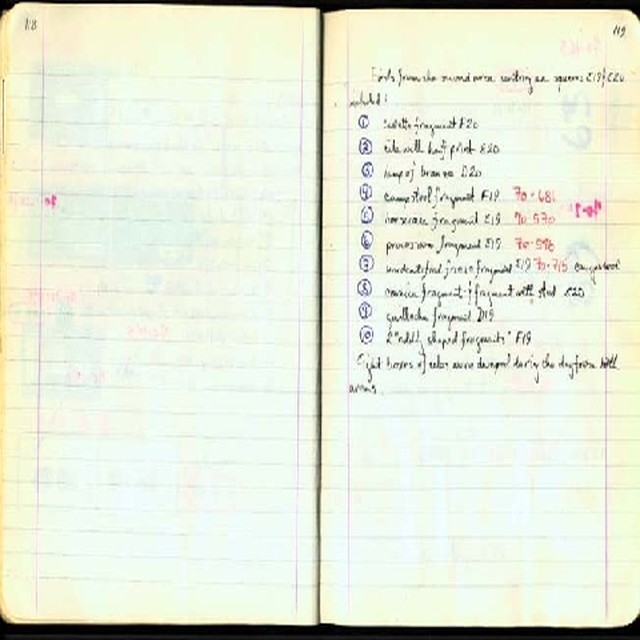 118
119
Finds from the second area working in squares E19/E20
included:
① fragment E20
② tile with hoof print E20
③ lump of bronze D20
④ campstool fragment F19 70-681
⑤ horserace fragment E19 70-570
⑥ fragment E19 70-596
⑦ unidentified frieze fragment E19 70-715 campstool
⑧ fragment - fragment with E20
⑨ guilloche fragment D19
⑩ 2 "oddly shaped fragments" F19
Eight boxes of tiles were dumped during the day from both
areas.